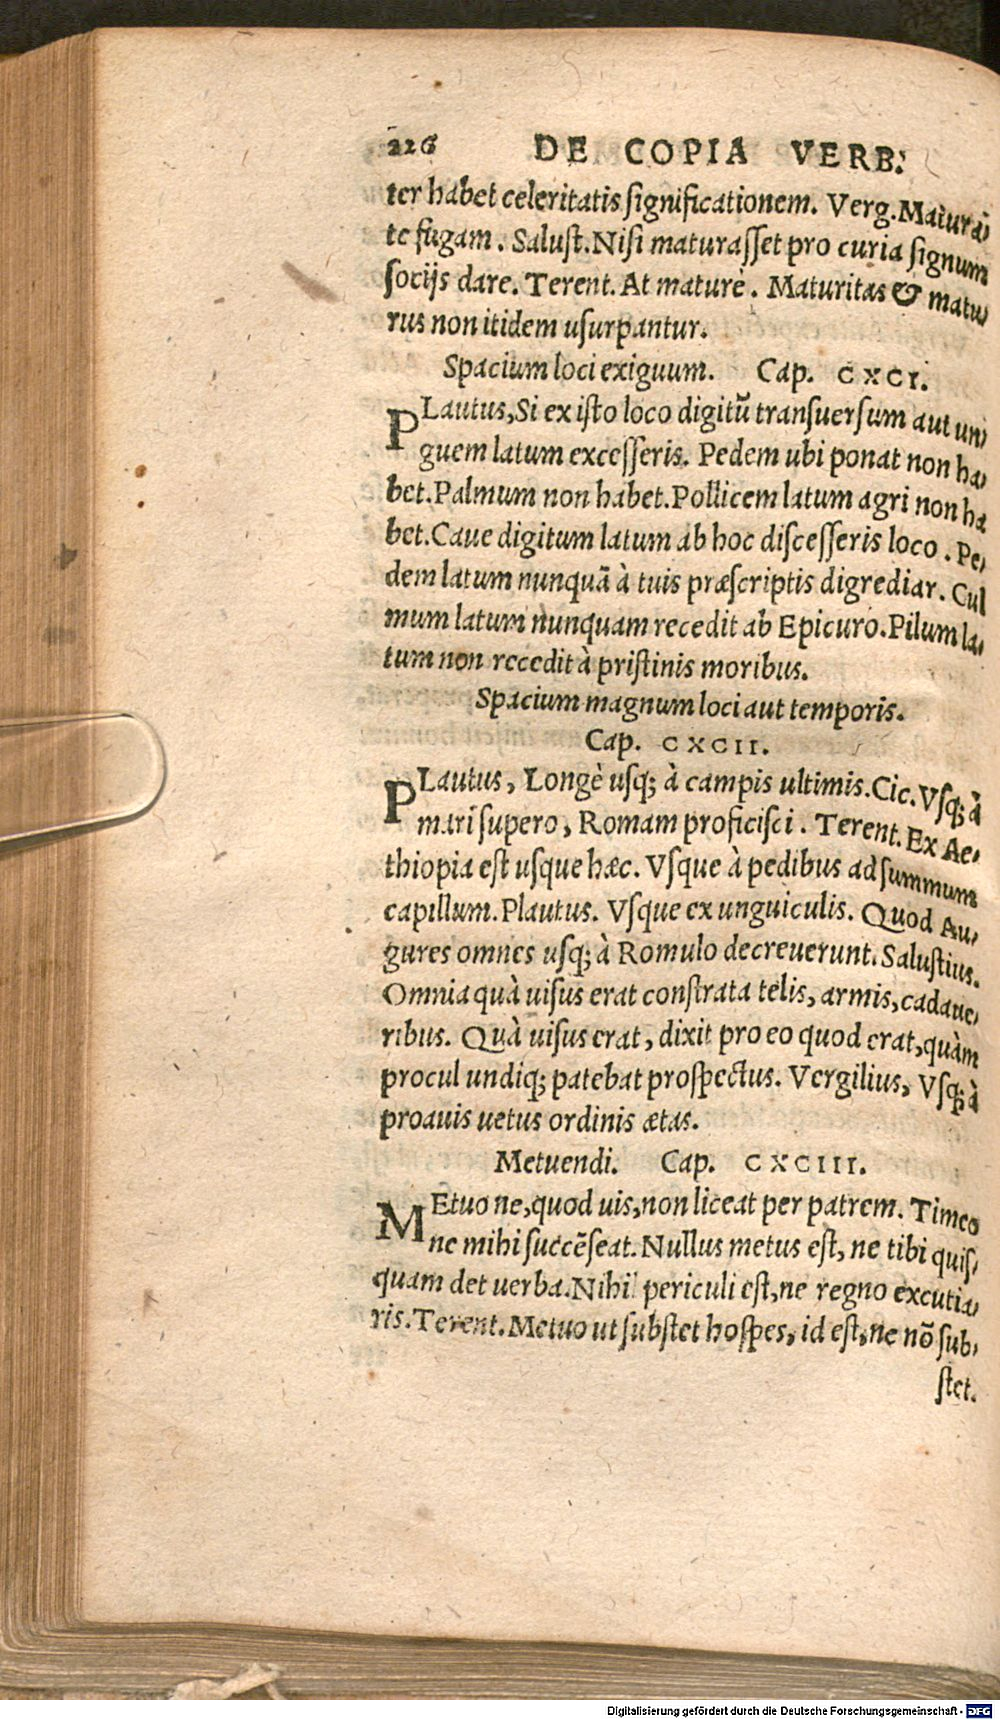 226 DE COPIA VERB:
ter habet celeritatis ſignificationem. Verg. Maturā⸗
te fugam. Saluſt. Niſi maturaſſet pro curia ſignum
ſocijs dare. Terent. At maturè. Maturitas & matu⸗
rus non itidem uſurpantur.
Spacium loci exiguum. Cap. CXCI.
PLautus, Si ex iſto loco digitū tranſuerſum aut un⸗
guem latum exceſſeris. Pedem ubi ponat non ha⸗
bet. Palmum non habet. Pollicem latum agri non ha
bet. Caue digitum latum ab hoc diſceſſeris loco. Pe⸗
dem latum nunquā à tuis præſcriptis digrediar. Cul
mum latum nunquam recedit ab Epicuro. Pilum la⸗
tum non recedit à priſtinis moribus.
Spacium magnum loci aut temporis.
Cap. CXCII.
PLautus, Longè uſq; à campis ultimis. Cic. Vſq; à
mari ſupero, Romam proficiſci. Terent. Ex Ae⸗
thiopia eſt uſque hæc. Vſque à pedibus ad ſummum
capillum. Plautus. Vſque ex unguiculis. Quod Au⸗
gures omnes uſq; à Romulo decreuerunt. Saluſtius.
Omnia quà uiſus erat conſtrata telis, armis, cadaue⸗
ribus. Quà uiſus erat, dixit pro eo quod erat, quàm
procul undiq; patebat proſpectus. Vergilius, Vſq; à
proauis uetus ordinis ætas.
Metuendi. Cap. CXCIII.
MEtuo ne, quod uis, non liceat per patrem. Timeo
ne mihi ſuccēſeat. Nullus metus eſt, ne tibi quiſ⸗
quam det uerba. Nihil periculi eſt, ne regno excutia⸗
ris. Terent. Metuo ut ſubſtet hoſpes, id eſt, ne nō ſub⸗
ſtet.
Digitalisierung gefördert durch die Deutsche Forschungsgemeinschaft - DFG